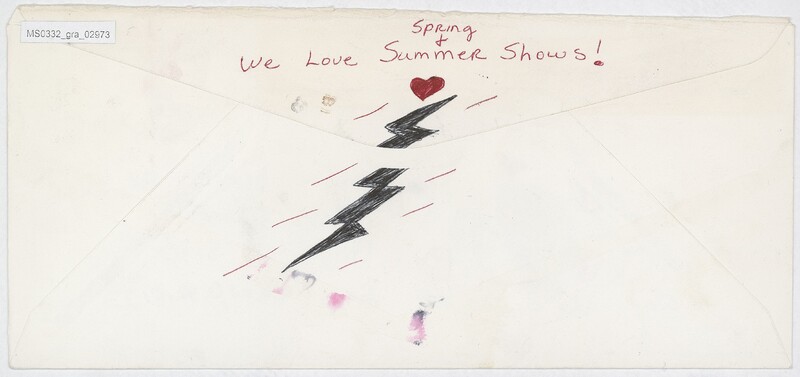 MS0332_gra_02973
Spring
&
We Love Summer Shows!